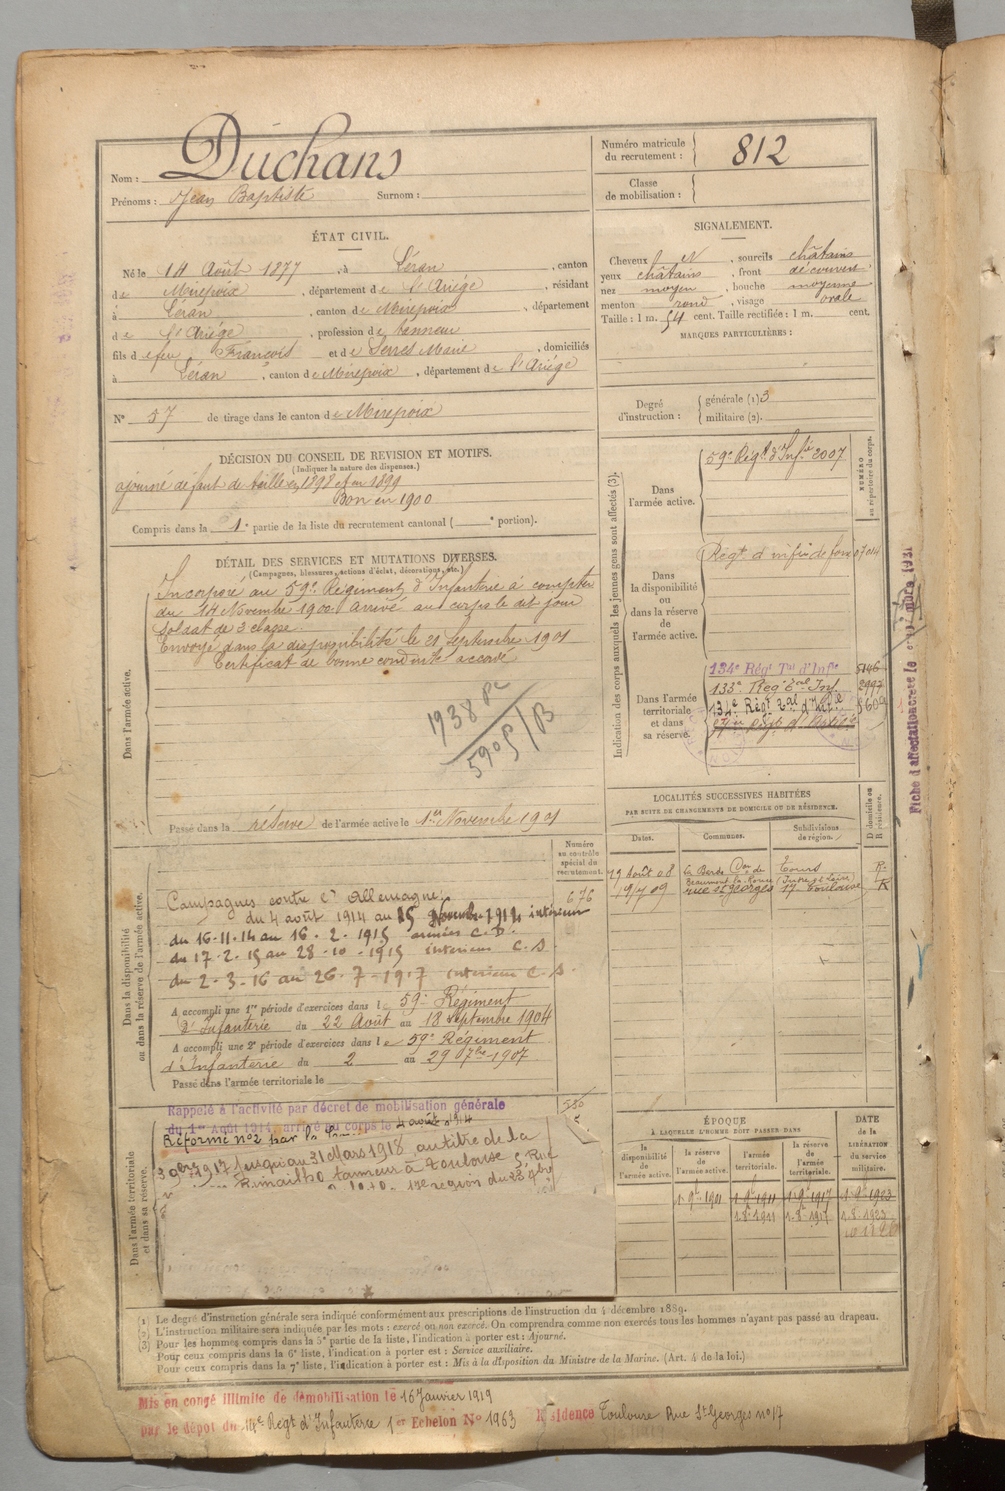 Nom : Duchans
Prénoms : Jean Baptiste Surnom :
Numéro matricule du recrutement : 812
Classe de mobilisation :
ÉTAT CIVIL.
Né le 14 Août 1877, à Léran, canton
de Mirepoix, département de l'Ariége, résidant
à Léran, canton de Mirepoix, département
de l'Ariége, profession de tanneur
fils d efeu François et de Serres Marie, domiciliés
à Léran, canton de Mirepoix, département de l'Ariége
N° 57 de tirage dans le canton de Mirepoix
SIGNALEMENT.
Cheveux N, sourcils châtains
yeux châtains, front découvert
nez moyen, bouche moyenne
menton rond, visage ovale
Taille : 1 m. 54 cent. Taille rectifiée : 1 m. cent.
MARQUES PARTICULIÈRES :
Degré d'instruction : générale (1) 3
militaire (2).
DÉCISION DU CONSEIL DE REVISION ET MOTIFS.
(Indiquer la nature des dispenses.)
ajourné défaut de taille en 1898 et en 1899
Bon en 1900
Compris dans la 1e partie de la liste du recrutement cantonal ( e portion).
DÉTAIL DES SERVICES ET MUTATIONS DIVERSES.
(Campagnes, blessures, actions d'éclat, décorations, etc.)
Dans l'armée active.
Incorporé au 59e Régiment d'Infanterie à compter
du 14 Novembre 1900 Arrivé au corps le dit jour
Soldat de 2 classe.
Envoyé dans la disponibilité le 21 Septembre 1901
Certificat de bonne conduite accordé
1938 Pe
590 5/B
Passé dans la réserve de l'armée active le 1er Novembre 1901
Indication des corps auxquels les jeunes gens sont affectés (3).
NUMÉRO au répertoire du corps.
Dans l'armée active.
59e Régt d'Infie 2007
Dans la disponibilité ou dans la réserve de l'armée active.
Régt d'infie de Foix 07014
Dans l'armée territoriale et dans sa réserve.
134e Régt Tal d'Infie 5146
133e Régt Tal Inf. 2997
134e Régt Tal d'Infie 560
Fiche d'affectation créée le mars 1931
LOCALITÉS SUCCESSIVES HABITÉES
PAR SUITE DE CHANGEMENTS DE DOMICILE OU DE RÉSIDENCE.
Dates. Communes. Subdivisions de région. D domicile ou R résidence.
19 Août 08 Tours R
Beaumont la Ronce (Indre et Loire)
19/7 09 rue St Georges 17 Toulouse R
Dans la disponibilité ou dans la réserve de l'armée active.
Numéro au contrôle spécial du recrutement.
676
Campagnes contre l'Allemagne:
du 4 août 1914 au 15 Novembre 1914 intérieur
du 16-11-14 au 16-2-1915 armées C.D.
du 17-2-15 au 28-10-1915 intérieur C.S
du 2-3-16 au 26-7-1917 intérieur C.S.
A accompli une 1re période d'exercices dans le 59e Régiment
d'Infanterie du 22 Août au 18 Septembre 1904
A accompli une 2e période d'exercices dans le 59e Régiment
d'Infanterie du 2 au 29 7bre 1907
Passé dans l'armée territoriale le
Dans l'armée territoriale et dans sa réserve.
Rappelé à l'activité par décret de mobilisation générale
du 1er Août 1914, arrivé au corps le 4 août 1914
Réformé n°2 par la
1917 jusqu'au 31 Mars 1918, au titre de la
Rimailho tanneur à Toulouse 5 Rue
région du
ÉPOQUE
À LAQUELLE L'HOMME DOIT PASSER DANS
la disponibilité de l'armée active. la réserve de l'armée active. l'armée territoriale. la réserve de l'armée territoriale.
DATE de la LIBÉRATION du service militaire.
1-9e-1901 1-9e-1911 1-9e-1917 1-9e-1923
1.8e.1911 1.8.1917 1.8.1923
(1) Le degré d'instruction générale sera indiqué conformément aux prescriptions de l'instruction du 4 décembre 1889.
(2) L'instruction militaire sera indiquée par les mots : exercé ou non exercé. On comprendra comme non exercés tous les hommes n'ayant pas passé au drapeau.
(3) Pour les hommes compris dans la 5e partie de la liste, l'indication à porter est : Ajourné.
Pour ceux compris dans la 6e liste, l'indication à porter est : Service auxiliaire.
Pour ceux compris dans la 7e liste, l'indication à porter est : Mis à la disposition du Ministre de la Marine. (Art. 4 de la loi.)
Mis en congé illimité de démobilisation le 16 Janvier 1919
par le dépôt du 14e Régt d'Infanterie 1er Echelon N° 1963 Résidence Toulouse Rue St Georges n° 17